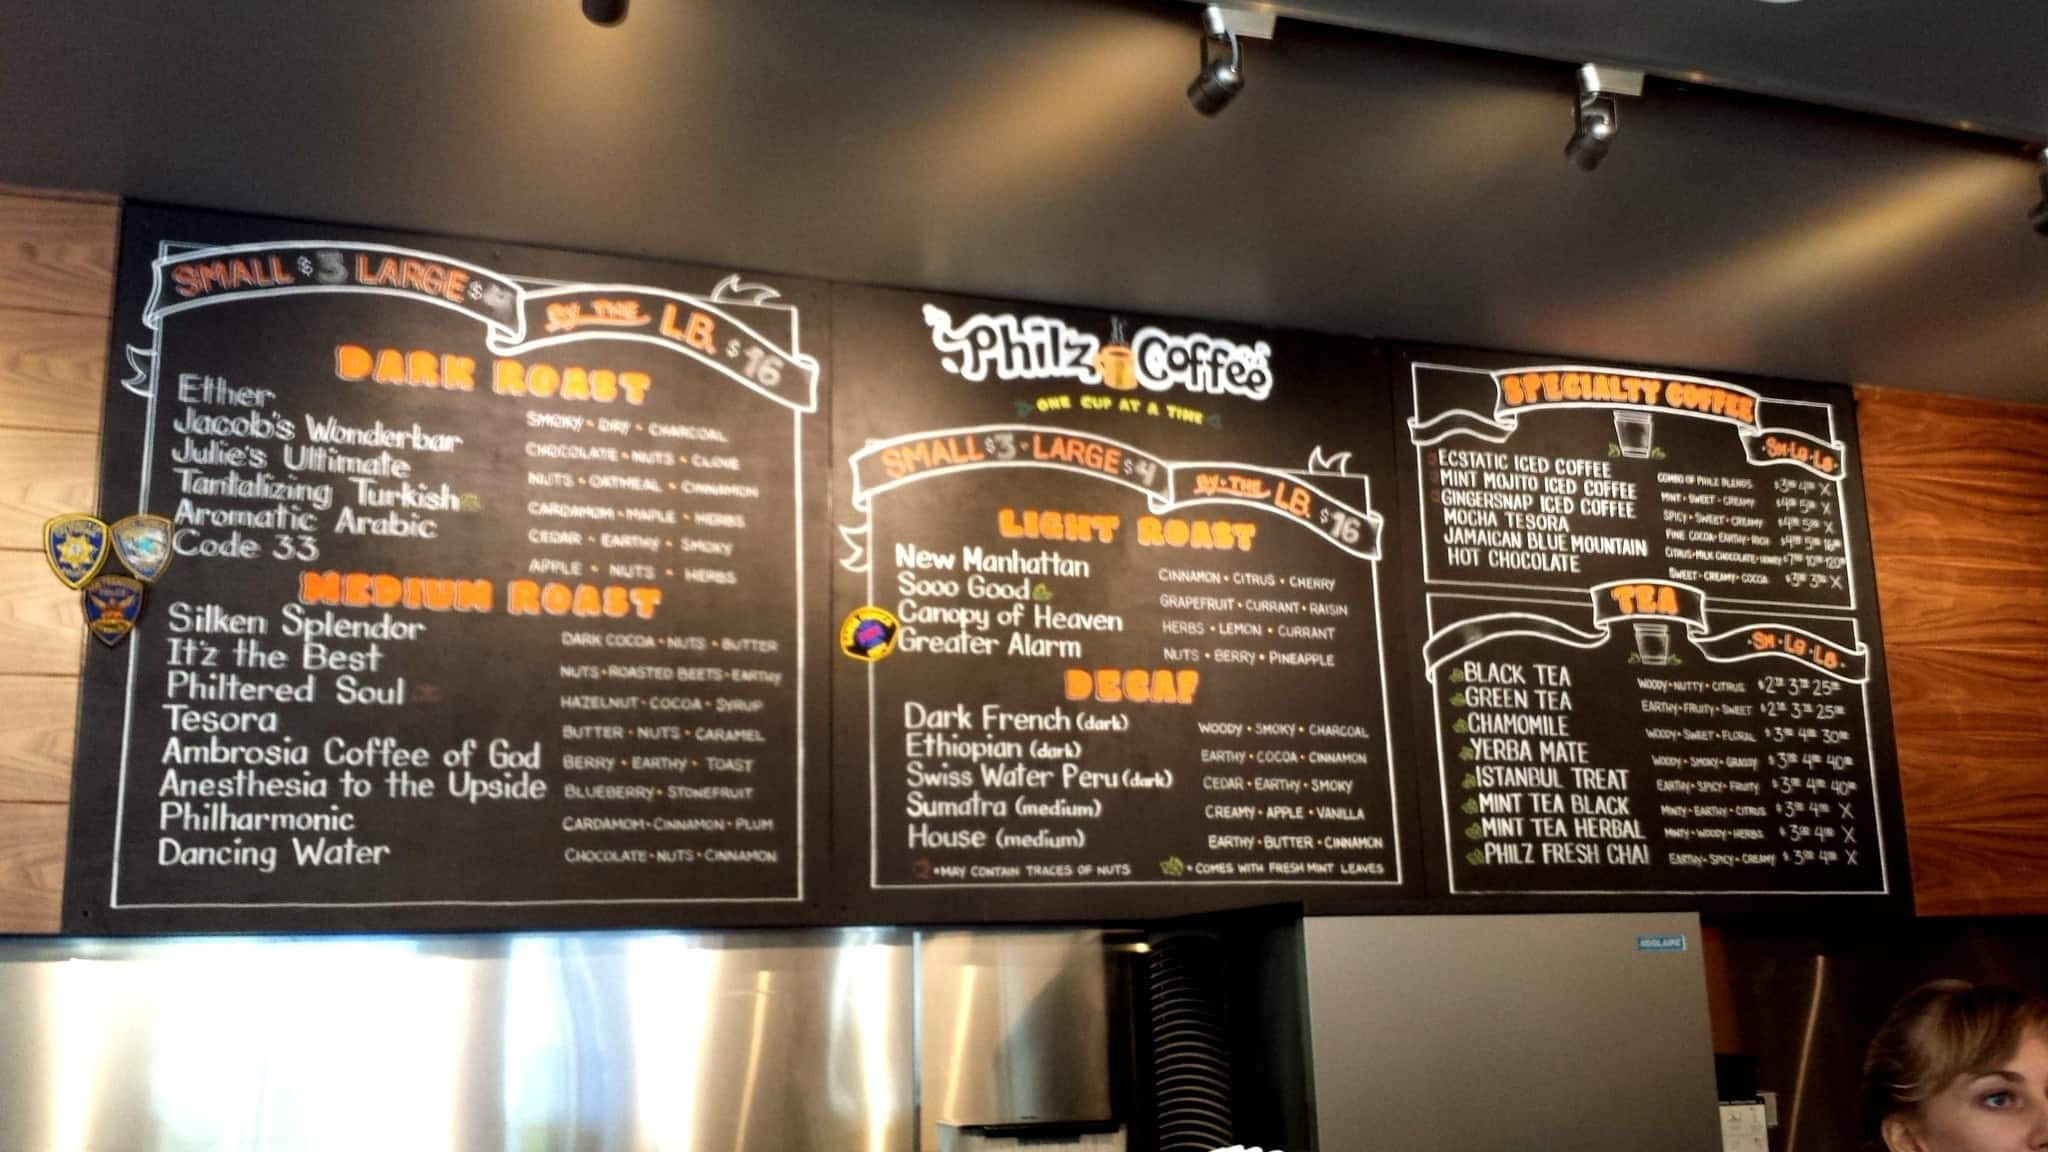 SMALL $3 LARGE $4
BY THE LB. $16
DARK ROAST
Ether SMOKY • DRY • CHARCOAL
Jacob's Wonderbar CHOCOLATE • NUTS • CLOVE
Julie's Ultimate NUTS • OATMEAL • CINNAMON
Tantalizing Turkish CARDAMOM • MAPLE • HERBS
Aromatic Arabic CEDAR • EARTHY • SMOKY
Code 33 APPLE • NUTS • HERBS
MEDIUM ROAST
Silken Splendor DARK COCOA • NUTS • BUTTER
It'z the Best NUTS • ROASTED BEETS • EARTHY
Philtered Soul HAZELNUT • COCOA • SYRUP
Tesora BUTTER • NUTS • CARAMEL
Ambrosia Coffee of God BERRY • EARTHY • TOAST
Anesthesia to the Upside BLUEBERRY • STONEFRUIT
Philharmonic CARDAMOM • CINNAMON • PLUM
Dancing Water CHOCOLATE • NUTS • CINNAMON
Philz Coffee
ONE CUP AT A TIME
SMALL $3 • LARGE $4
BY • THE LB. $16
LIGHT ROAST
New Manhattan CINNAMON • CITRUS • CHERRY
Sooo Good GRAPEFRUIT • CURRANT • RAISIN
Canopy of Heaven HERBS • LEMON • CURRANT
Greater Alarm NUTS • BERRY • PINEAPPLE
DECAF
Dark French (dark) WOODY • SMOKY • CHARCOAL
Ethiopian (dark) EARTHY • COCOA • CINNAMON
Swiss Water Peru (dark) CEDAR • EARTHY • SMOKY
Sumatra (medium) CREAMY • APPLE • VANILLA
House (medium) EARTHY • BUTTER • CINNAMON
• MAY CONTAIN TRACES OF NUTS • COMES WITH FRESH MINT LEAVES
SPECIALTY COFFEE
SM • LG • LB
ECSTATIC ICED COFFEE COMBO OF PHILZ BLENDS $3 4 X
MINT MOJITO ICED COFFEE MINT • SWEET • CREAMY $4 5 X
GINGERSNAP ICED COFFEE SPICY • SWEET • CREAMY $4 5 X
MOCHA TESORA FINE COCOA • EARTHY • RICH $4 5 16
JAMAICAN BLUE MOUNTAIN CITRUS • MILK CHOCOLATE • HONEY $7 10 120
HOT CHOCOLATE SWEET • CREAMY • COCOA $3 3 X
TEA
SM • LG • LB
BLACK TEA WOODY • NUTTY • CITRUS $2 3 25
GREEN TEA EARTHY • FRUITY • SWEET $2 3 25
CHAMOMILE WOODY • SWEET • FLORAL $3 4 30
YERBA MATE WOODY • SMOKY • GRASSY $3 4 40
ISTANBUL TREAT EARTHY • SPICY • FRUITY $3 4 40
MINT TEA BLACK MINTY • EARTHY • CITRUS $3 4 X
MINT TEA HERBAL MINTY • WOODY • HERBS $3 4 X
PHILZ FRESH CHAI EARTHY • SPICY • CREAMY $3 4 X